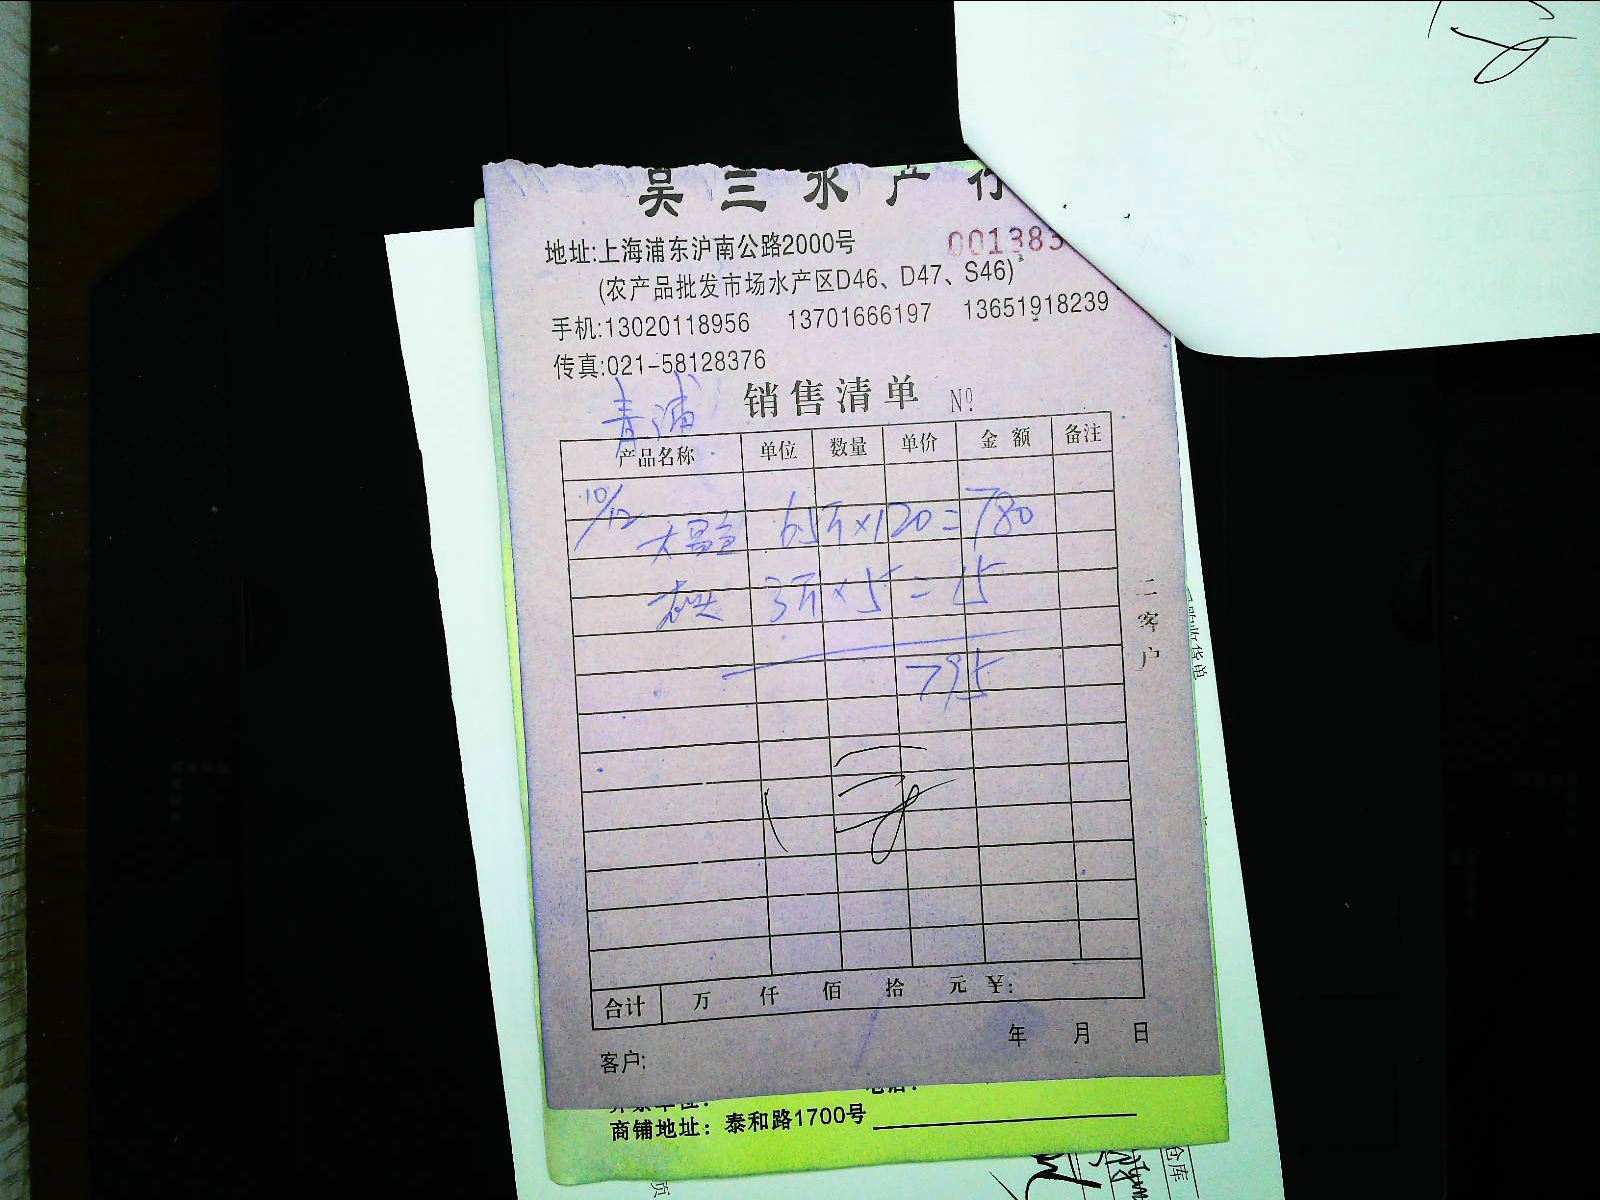 吴三水产行
地址:上海浦东沪南公路2000号
001383
(农产品批发市场水产区D46、D47、S46)
手机:13020118956 13701666197 13651918239
传真:021-58128376
青浦
销售清单 Nº
产品名称 单位 数量 单价 金额 备注
10/12
6.5斤×120=780
3斤×5=15
795
二客户
合计 万 仟 佰 拾 元 ¥:
年 月 日
客户:
商铺地址：泰和路1700号
仓库
页